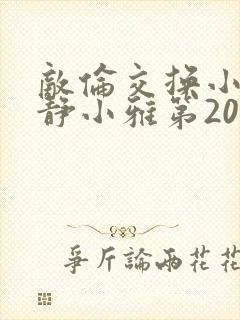 敵倫交換小
静小雅第20
爭斤論兩花花